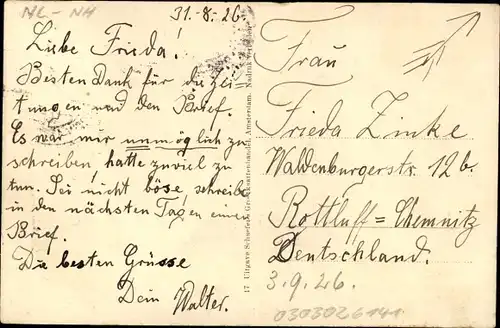 NL-NH
31.-8.26.
Liebe Frieda!
Besten Dank für die Zei-
tungen und den Brief.
Es war mir unmöglich zu
schreiben, hatte zuviel zu
tun. Sei nicht böse, schreibe
in den nächsten Tagen einen
Brief.
Die besten Grüsse
Dein Walter.
17 Uitgave Schaefers Amsterdam. Nadruk verboden
Frau
Frieda Zinke
Waldenburgerstr. 12b.
Rottluff=Chemnitz
Deutschland.
3.9.26.
0303026141